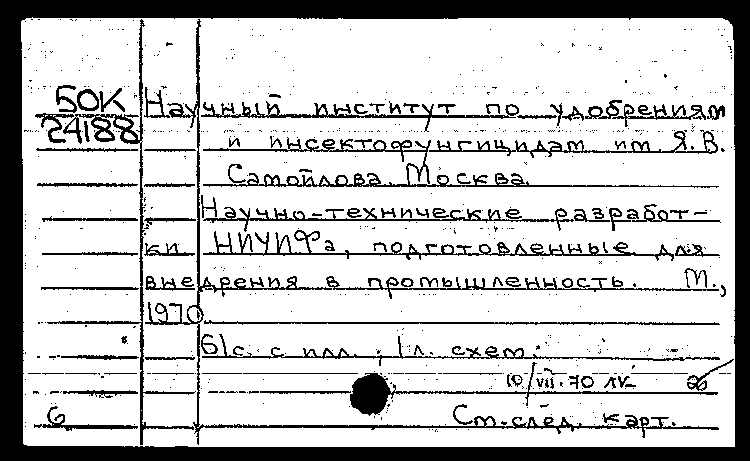 50К Научный институт по удобрениям
24188 и инсектофунгицидам им. Я.В.
Самойлова. Москва.
Научно-технические разработ-
ки НИУИФа, подготовленные для
внедрения в промышленность. М.,
1970.
61с. с илл.; 1л. схем.
10/VII.70 ЛК
6 См.след. карт.